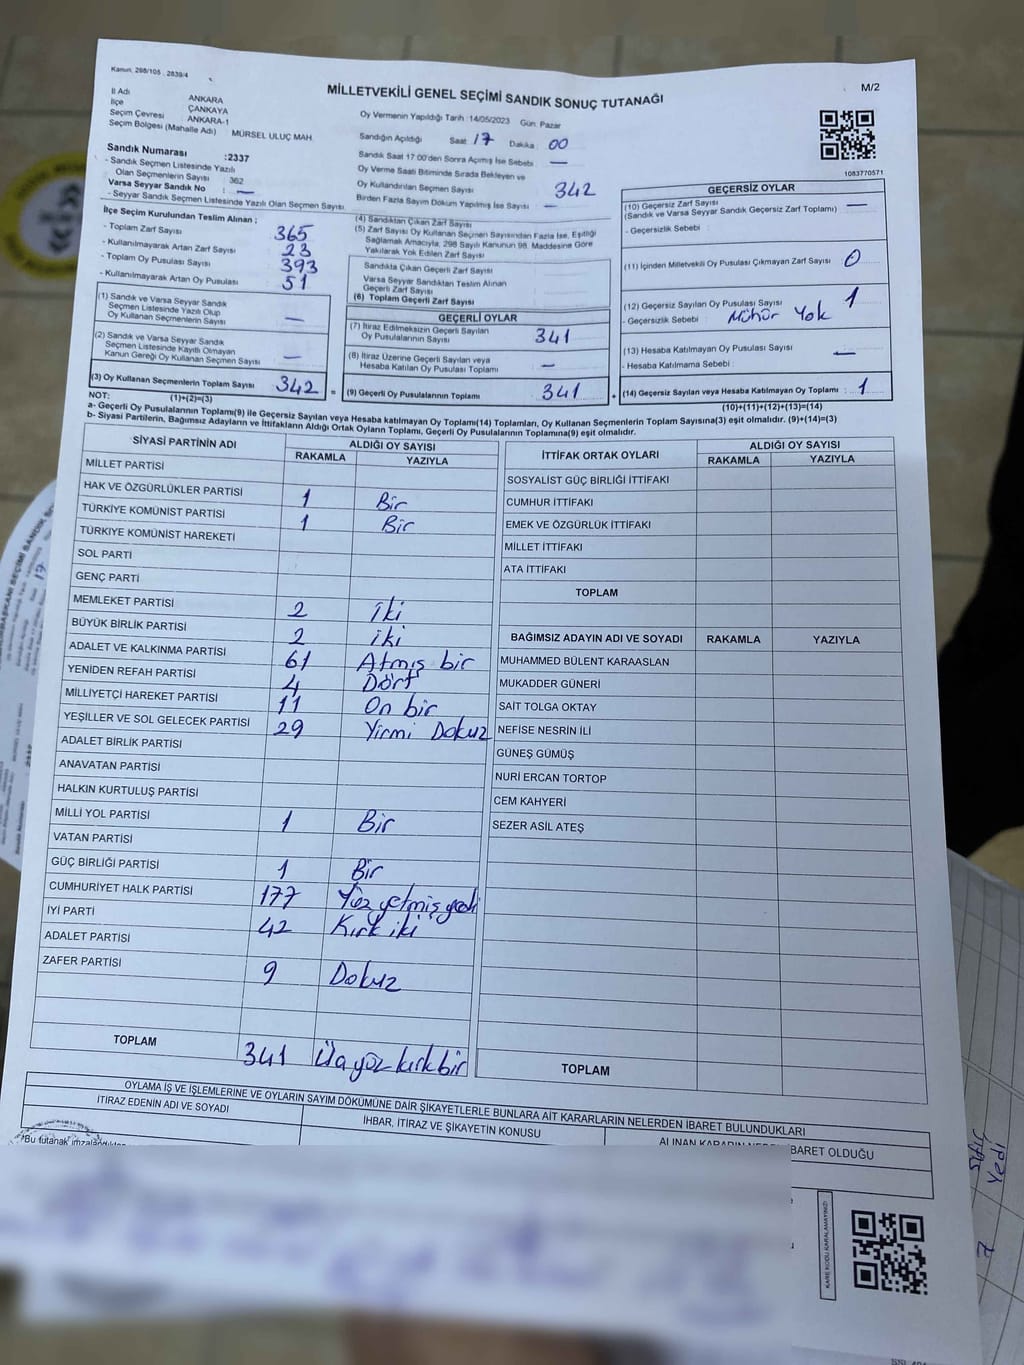 Kanun, 298/105 , 2839/4
M/2
MİLLETVEKİLİ GENEL SEÇİMİ SANDIK SONUÇ TUTANAĞI
İl Adı ANKARA
İlçe ÇANKAYA
Seçim Çevresi ANKARA-1
Seçim Bölgesi (Mahalle Adı) MÜRSEL ULUÇ MAH.
Sandık Numarası :2337
- Sandık Seçmen Listesinde Yazılı
Olan Seçmenlerin Sayısı 362
Varsa Seyyar Sandık No : —
- Seyyar Sandık Seçmen Listesinde Yazılı Olan Seçmen Sayısı
Oy Vermenin Yapıldığı Tarih :14/05/2023 Gün: Pazar
Sandığın Açıldığı Saat 17 Dakika 00
Sandık Saat 17:00'den Sonra Açımış İse Sebebi —
Oy Verme Saati Bitiminde Sırada Bekleyen ve
Oy Kullandırılan Seçmen Sayısı 342
Birden Fazla Sayım Döküm Yapılmış İse Sayısı —
1083770571
İlçe Seçim Kurulundan Teslim Alınan ;
- Toplam Zarf Sayısı 365
- Kullanılmayarak Artan Zarf Sayısı 23
- Toplam Oy Pusulası Sayısı 393
- Kullanılmayarak Artan Oy Pusulası 51
(1) Sandık ve Varsa Seyyar Sandık
Seçmen Listesinde Yazılı Olup
Oy Kullanan Seçmenlerin Sayısı —
(2) Sandık ve Varsa Seyyar Sandık
Seçmen Listesinde Kayıtlı Olmayan
Kanun Gereği Oy Kullanan Seçmen Sayısı —
(3) Oy Kullanan Seçmenlerin Toplam Sayısı 342 =
(1)+(2)=(3)
(4) Sandıktan Çıkan Zarf Sayısı
(5) Zarf Sayısı Oy Kullanan Seçmen Sayısından Fazla İse, Eşitliği
Sağlamak Amacıyla, 298 Sayılı Kanunun 98. Maddesine Göre
Yakılarak Yok Edilen Zarf Sayısı
Sandıkta Çıkan Geçerli Zarf Sayısı
Varsa Seyyar Sandıktan Teslim Alınan
Geçerli Zarf Sayısı
(6) Toplam Geçerli Zarf Sayısı
GEÇERLİ OYLAR
(7) İtiraz Edilmeksizin Geçerli Sayılan
Oy Pusulasının Sayısı 341
(8) İtiraz Üzerine Geçerli Sayılan veya
Hesaba Katılan Oy Pusulası Toplamı —
(9) Geçerli Oy Pusulalarının Toplamı 341 +
GEÇERSİZ OYLAR
(10) Geçersiz Zarf Sayısı —
(Sandık ve Varsa Seyyar Sandık Geçersiz Zarf Toplamı)
- Geçersizlik Sebebi :
(11) İçinden Milletvekili Oy Pusulası Çıkmayan Zarf Sayısı 0
(12) Geçersiz Sayılan Oy Pusulası Sayısı 1
- Geçersizlik Sebebi : Mühür Yok
(13) Hesaba Katılmayan Oy Pusulası Sayısı —
- Hesaba Katılmama Sebebi :
(14) Geçersiz Sayılan veya Hesaba Katılmayan Oy Toplamı : 1
(10)+(11)+(12)+(13)=(14)
NOT:
a- Geçerli Oy Pusulalarının Toplamı(9) ile Geçersiz Sayılan veya Hesaba katılmayan Oy Toplamı(14) Toplamları, Oy Kullanan Seçmenlerin Toplam Sayısına(3) eşit olmalıdır. (9)+(14)=(3)
b- Siyasi Partilerin, Bağımsız Adayların ve İttifakların Aldığı Ortak Oyların Toplamı, Geçerli Oy Pusulalarının Toplamına(9) eşit olmalıdır.
SİYASİ PARTİNİN ADI ALDIĞI OY SAYISI
RAKAMLA YAZIYLA
MİLLET PARTİSİ
HAK VE ÖZGÜRLÜKLER PARTİSİ 1 Bir
TÜRKİYE KOMÜNİST PARTİSİ 1 Bir
TÜRKİYE KOMÜNİST HAREKETİ
SOL PARTİ
GENÇ PARTİ
MEMLEKET PARTİSİ 2 iki
BÜYÜK BİRLİK PARTİSİ 2 iki
ADALET VE KALKINMA PARTİSİ 61 Atmış bir
YENİDEN REFAH PARTİSİ 4 Dört
MİLLİYETÇİ HAREKET PARTİSİ 11 On bir
YEŞİLLER VE SOL GELECEK PARTİSİ 29 Yirmi Dokuz
ADALET BİRLİK PARTİSİ
ANAVATAN PARTİSİ
HALKIN KURTULUŞ PARTİSİ
MİLLİ YOL PARTİSİ 1 Bir
VATAN PARTİSİ
GÜÇ BİRLİĞİ PARTİSİ 1 Bir
CUMHURİYET HALK PARTİSİ 177 Yüz yetmiş yedi
İYİ PARTİ 42 Kırk iki
ADALET PARTİSİ
ZAFER PARTİSİ 9 Dokuz
TOPLAM 341 Üçyüz kırk bir
İTTİFAK ORTAK OYLARI ALDIĞI OY SAYISI
RAKAMLA YAZIYLA
SOSYALİST GÜÇ BİRLİĞİ İTTİFAKI
CUMHUR İTTİFAKI
EMEK VE ÖZGÜRLÜK İTTİFAKI
MİLLET İTTİFAKI
ATA İTTİFAKI
TOPLAM
BAĞIMSIZ ADAYIN ADI VE SOYADI RAKAMLA YAZIYLA
MUHAMMED BÜLENT KARAASLAN
MUKADDER GÜNERİ
SAİT TOLGA OKTAY
NEFİSE NESRİN İLİ
GÜNEŞ GÜMÜŞ
NURİ ERCAN TORTOP
CEM KAHYERİ
SEZER ASİL ATEŞ
TOPLAM
OYLAMA İŞ VE İŞLEMLERİNE VE OYLARIN SAYIM DÖKÜMÜNE DAİR ŞİKAYETLERLE BUNLARA AİT KARARLARIN NELERDEN İBARET BULUNDUKLARI
İTİRAZ EDENİN ADI VE SOYADI İHBAR, İTİRAZ VE ŞİKAYETİN KONUSU ALINAN KARARIN NEDEN İBARET OLDUĞU
"Bu tutanak imzalandıktan
KARE KODU KARALAMAYINIZ!
Sıfır
Yedi
7